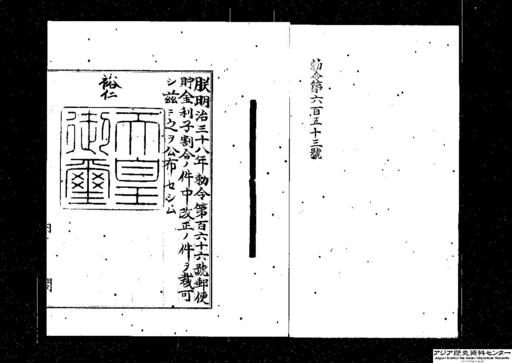 勅令第六百五十三號
朕明治三十八年勅令第百六十六號郵便
貯金利子割合ノ件中改正ノ件ヲ裁可
シ茲ニ之ヲ公布セシム
裕仁
天皇
御璽
内閣
アジア歴史資料センター
Japan Center for Asian Historical Records